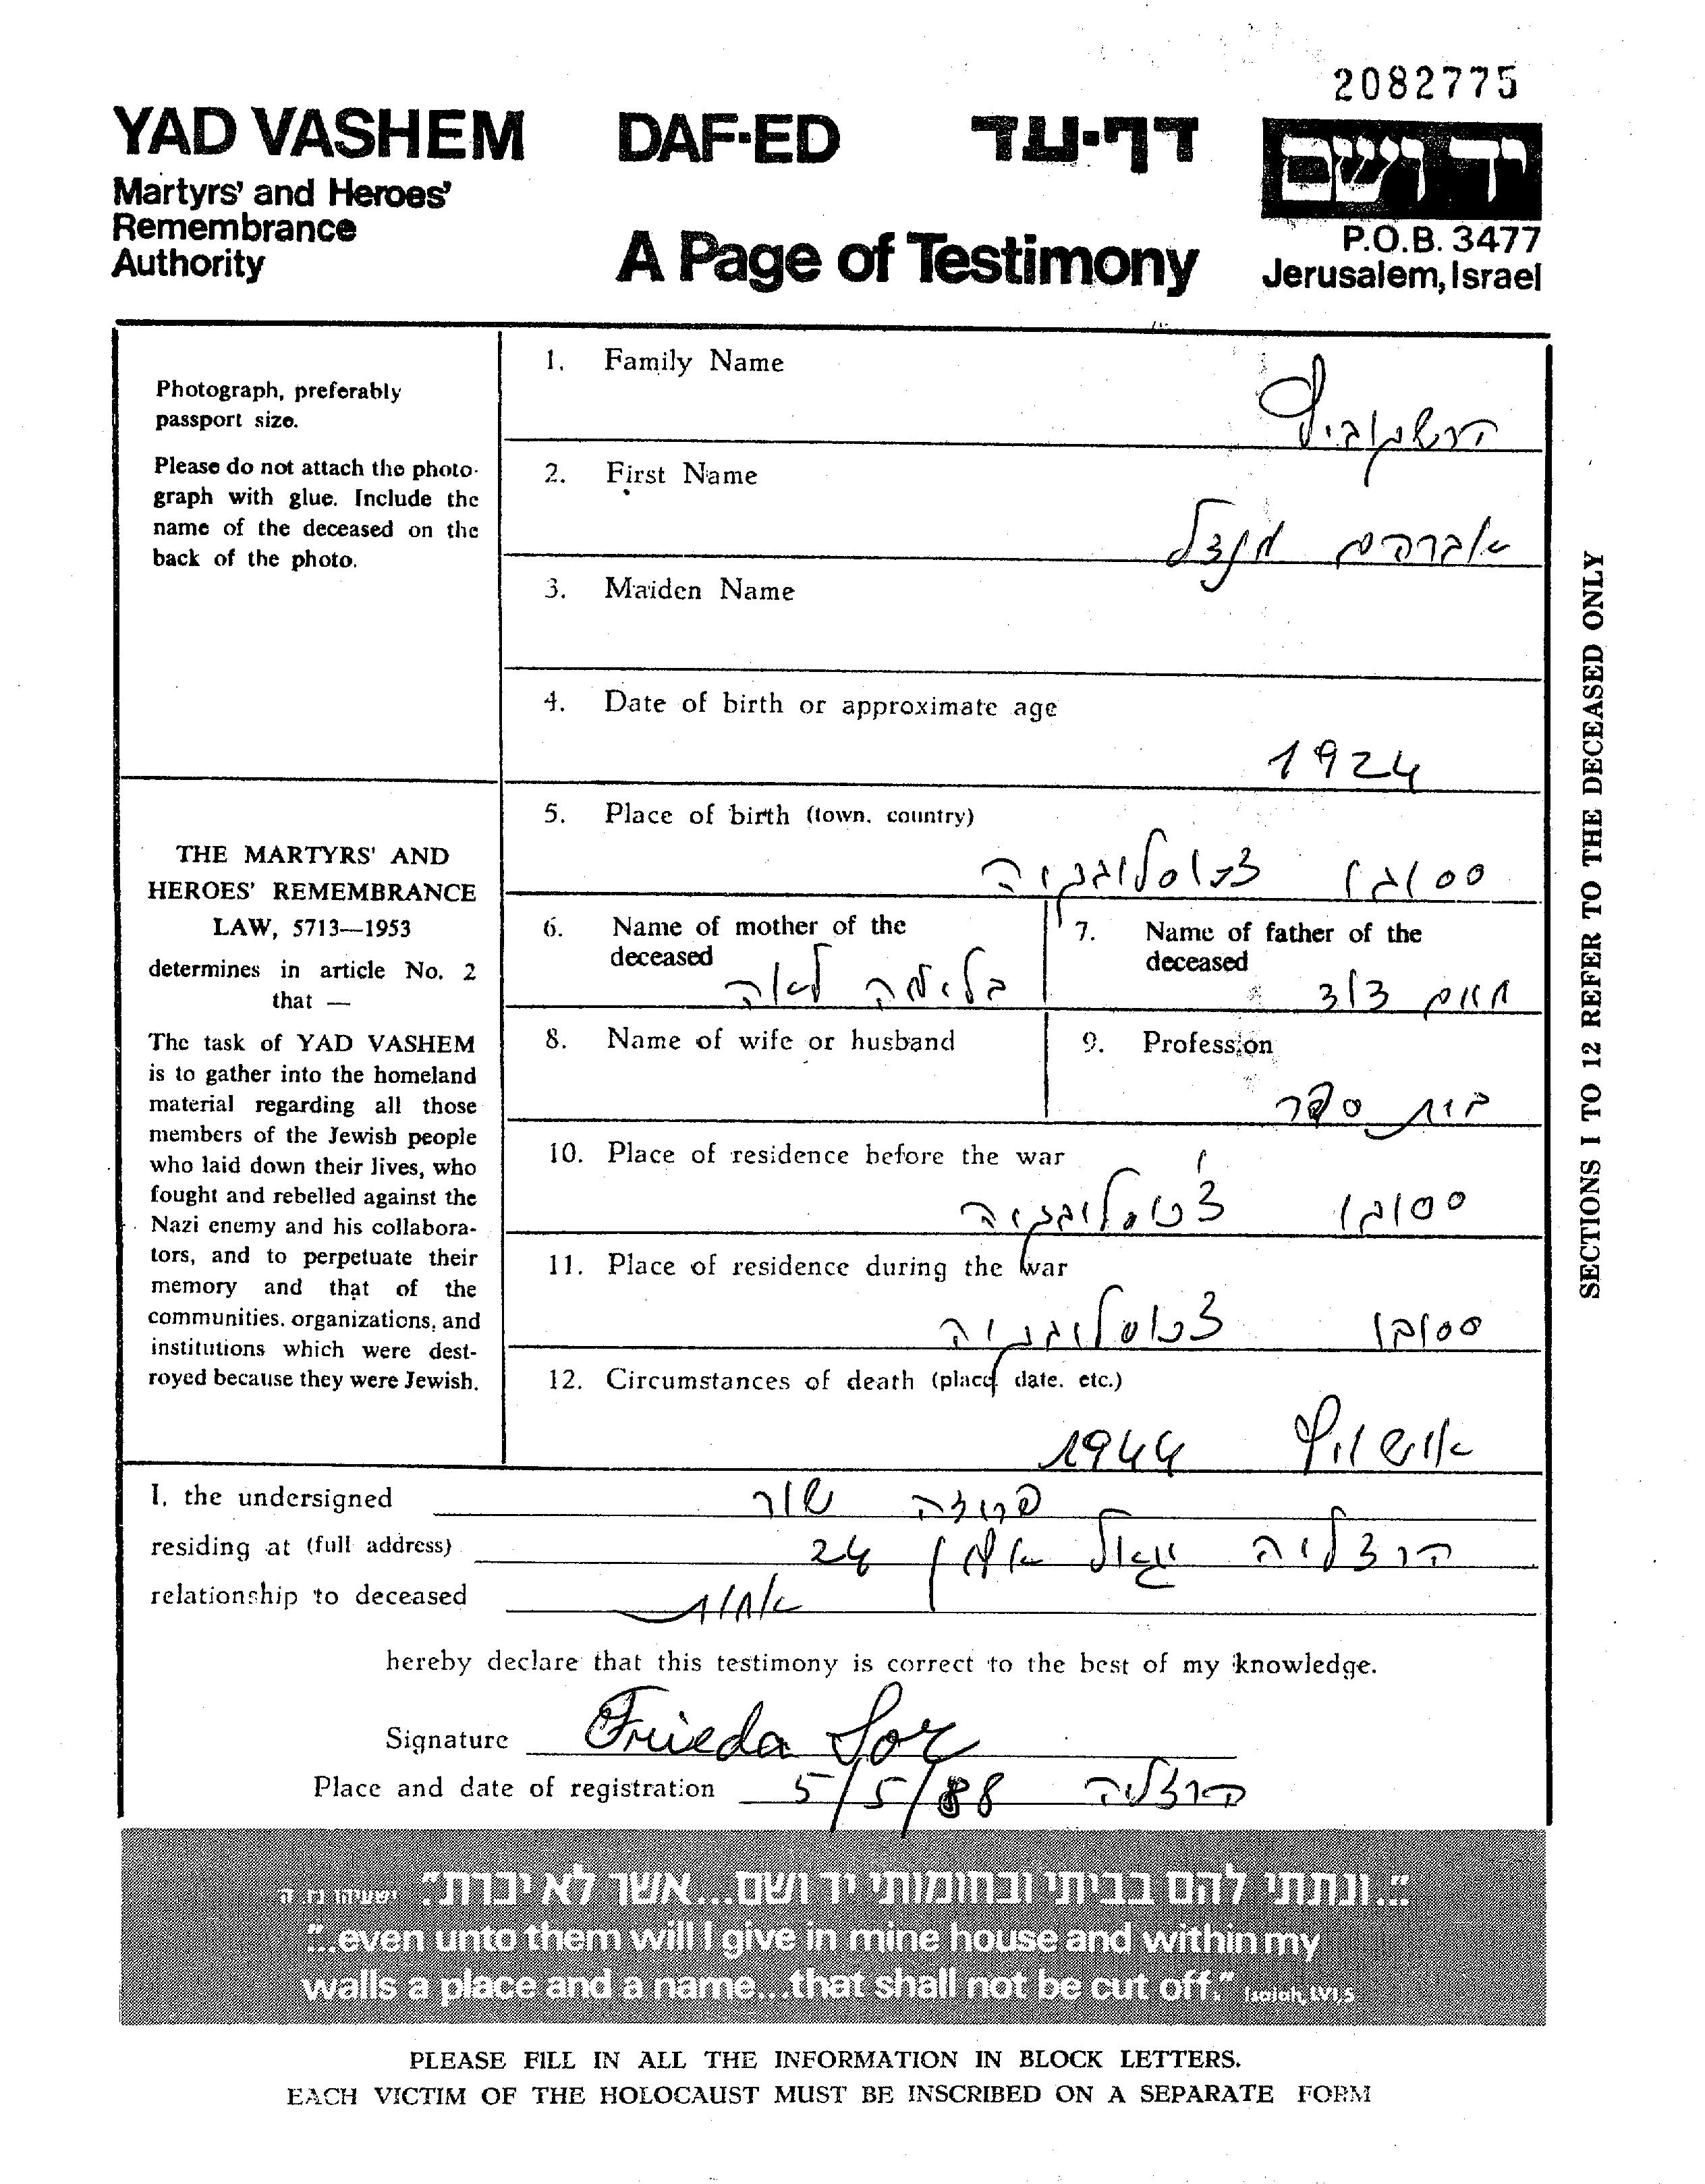 2082775
YAD VASHEM DAF-ED דף-עד יד ושם
Martyrs' and Heroes'
Remembrance
Authority
A Page of Testimony
P.O.B. 3477
Jerusalem, Israel
Photograph, preferably
passport size.
Please do not attach the photo-
graph with glue. Include the
name of the deceased on the
back of the photo.
THE MARTYRS' AND
HEROES' REMEMBRANCE
LAW, 5713—1953
determines in article No. 2
that —
The task of YAD VASHEM
is to gather into the homeland
material regarding all those
members of the Jewish people
who laid down their lives, who
fought and rebelled against the
Nazi enemy and his collabora-
tors, and to perpetuate their
memory and that of the
communities, organizations, and
institutions which were dest-
royed because they were Jewish.
1. Family Name
הרשקוביץ
2. First Name
אברהם מנדל
3. Maiden Name
4. Date of birth or approximate age
1924
5. Place of birth (town, country)
צ'כוסלובקיה
6. Name of mother of the
deceased
בלימה לאה
7. Name of father of the
deceased
חיים
8. Name of wife or husband
9. Profession
בית ספר
10. Place of residence before the war
צ'כוסלובקיה
11. Place of residence during the war
צ'כוסלובקיה
12. Circumstances of death (place, date, etc.)
אושויץ 1944
SECTIONS 1 TO 12 REFER TO THE DECEASED ONLY
I, the undersigned פרידה שור
residing at (full address) הרצליה יגאל אלון 24
relationship to deceased אחות
hereby declare that this testimony is correct to the best of my knowledge.
Signature Frieda Sor
Place and date of registration הרצליה 5/5/88
"...ונתתי להם בביתי ובחומותי יד ושם...אשר לא יכרת" ישעיהו נו, ה
"...even unto them will I give in mine house and within my
walls a place and a name...that shall not be cut off." Isaiah, LVI,5
PLEASE FILL IN ALL THE INFORMATION IN BLOCK LETTERS.
EACH VICTIM OF THE HOLOCAUST MUST BE INSCRIBED ON A SEPARATE FORM